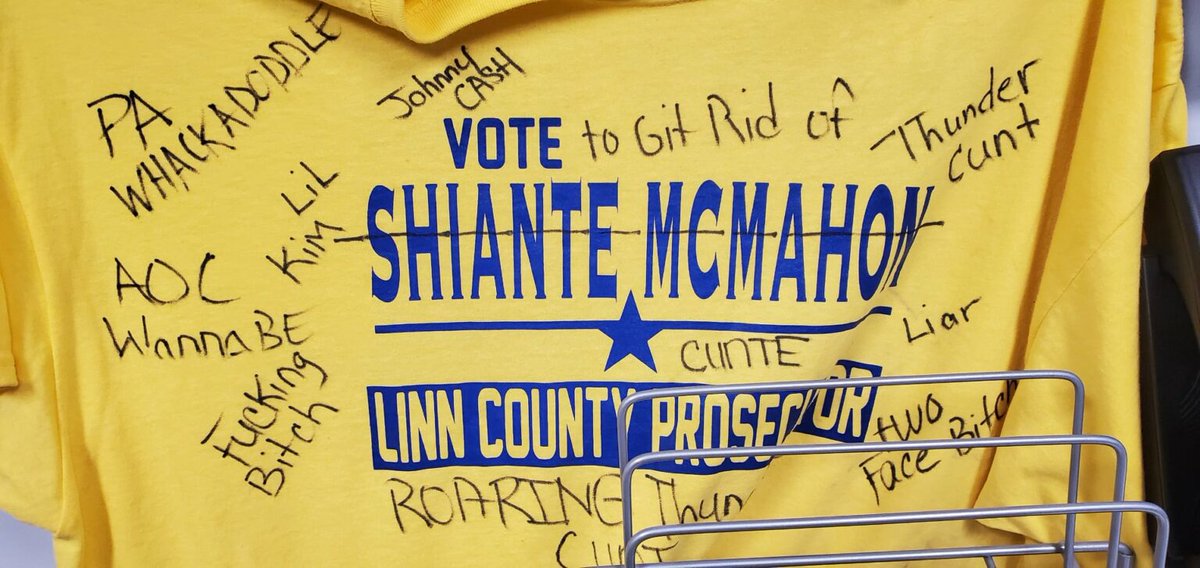 PA
WHACKADODDLE
Johnny
CASH
VOTE to Git Rid of
Thunder
Cunt
LiL
Kim
SHIANTE MCMAHON
AOC
WannaBE
Liar
CUNTE
Fucking
Bitch
LINN COUNTY PROSECUTOR
two
Face Bitch
ROARING Thun
Cunt